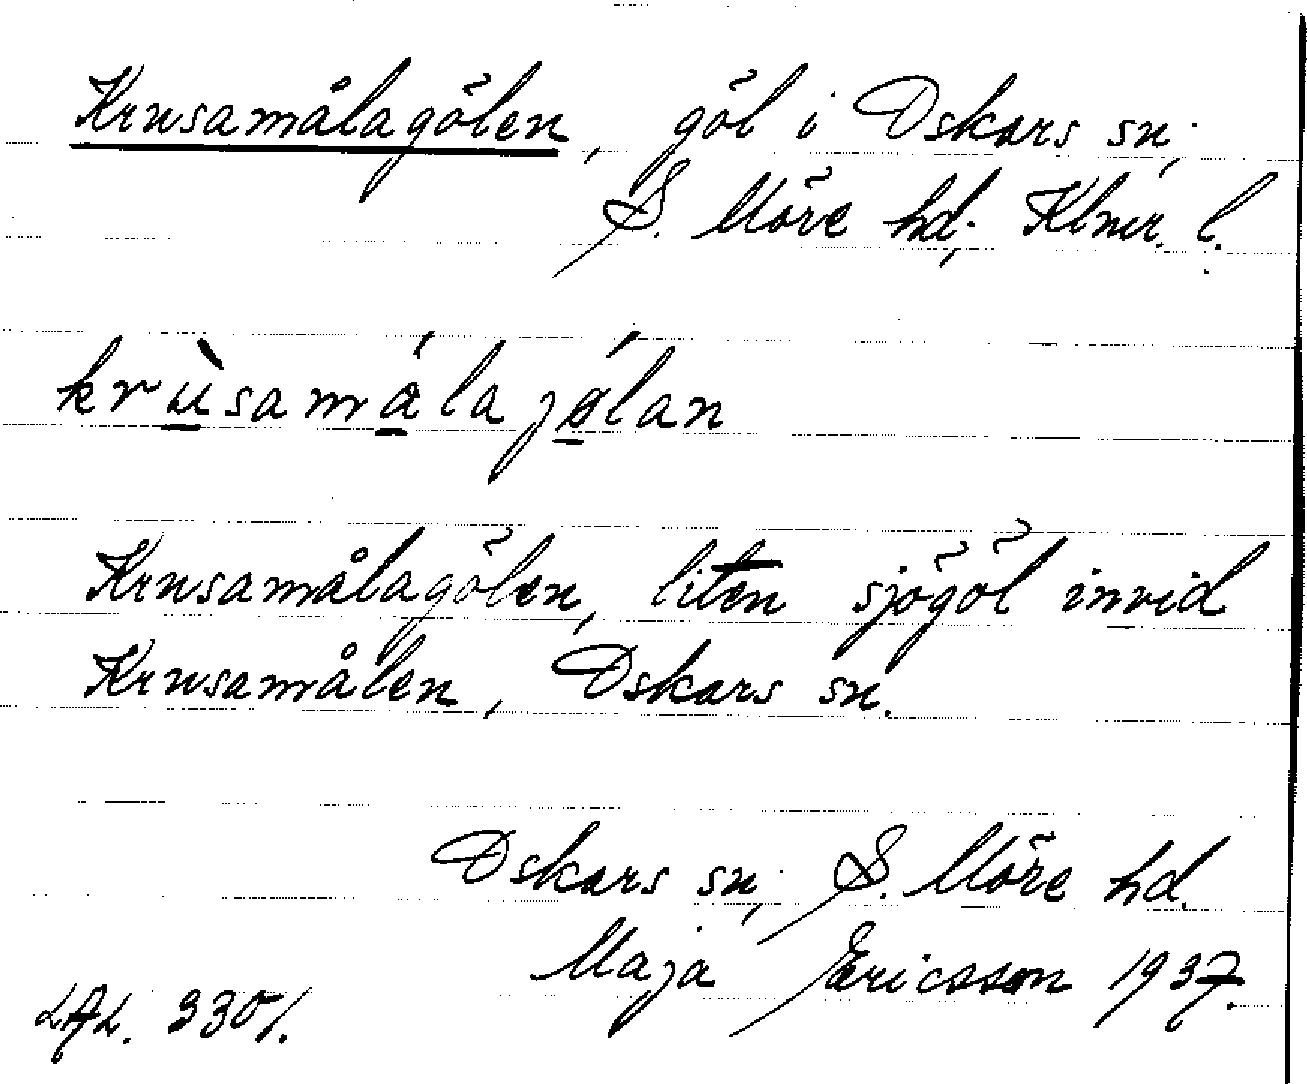 Krusamålagölen, göl i Oskars sn,
S. Möre hd, Klmr. l.
krùsamálajǿlan
Krusamålagölen, liten sjögöl invid
Krusamålen, Oskars sn.
Oskars sn, S. Möre hd.
Maja Ericsson 1937.
LAL. 3301.